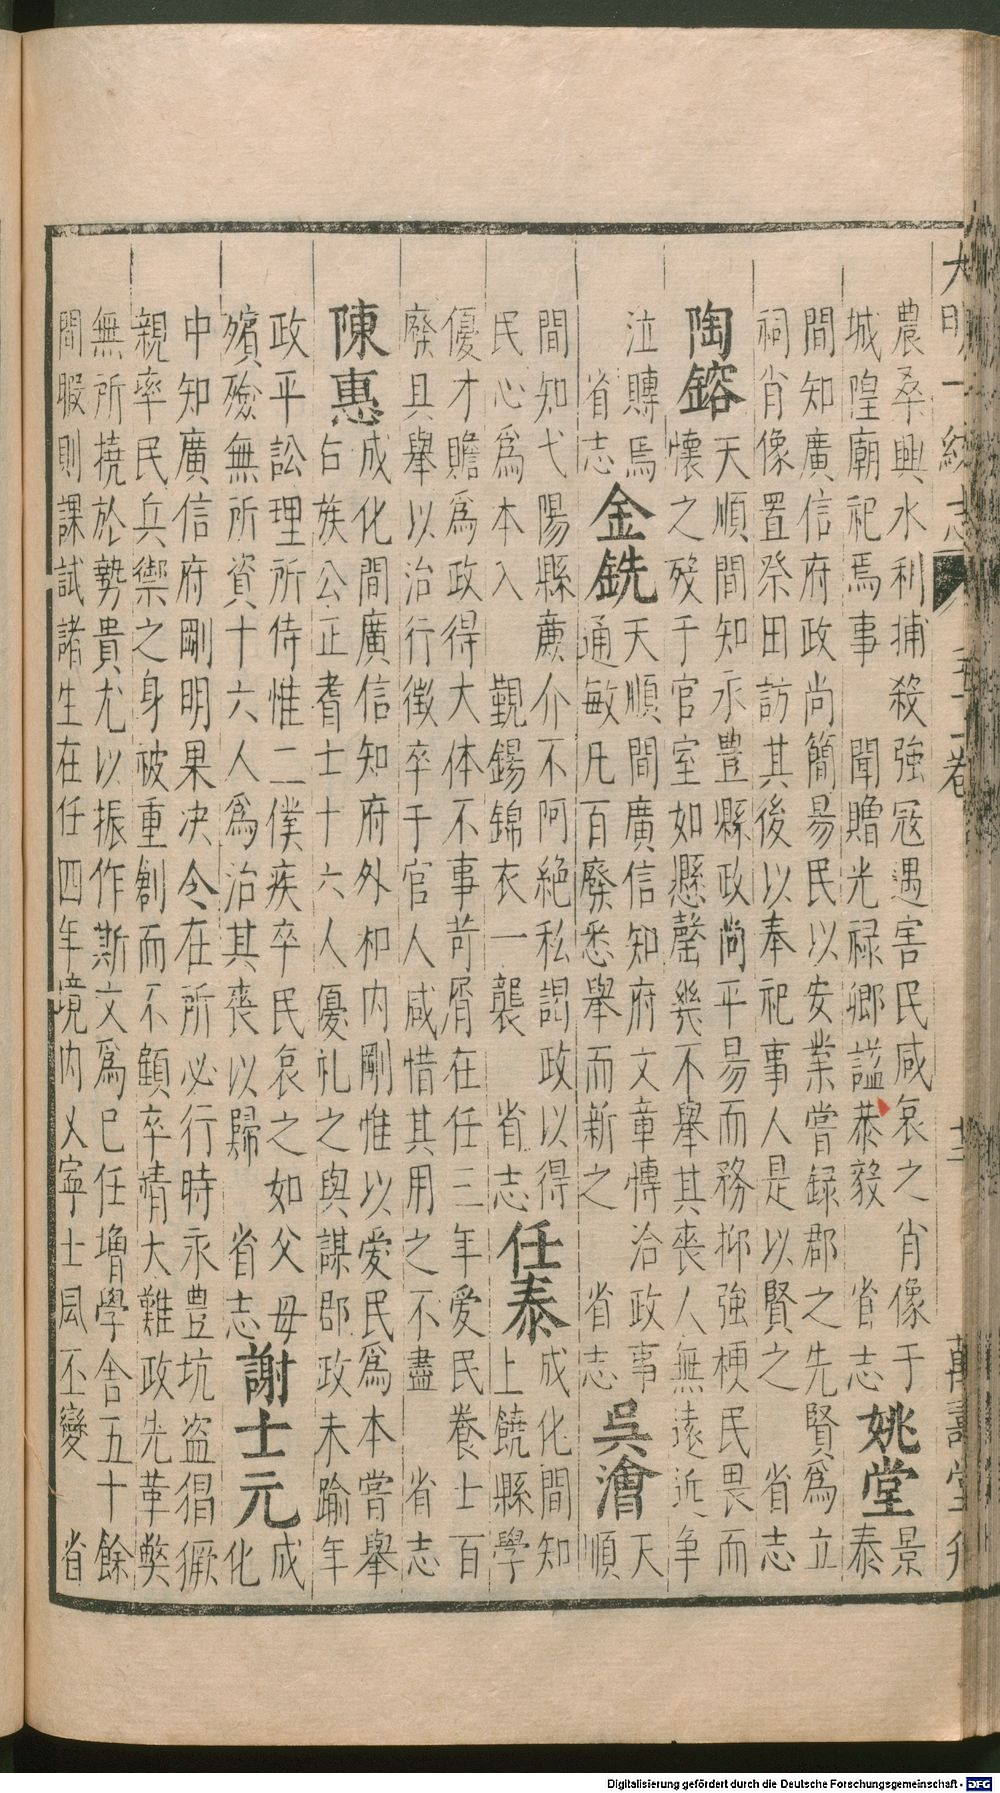 大明一統志 五十一卷 十二 萬壽堂刊
農桑興水利捕殺強寇遇害民咸哀之肖像于
城隍廟祀焉事 聞贈光禄卿謚恭毅 省志 姚堂 景泰
間知廣信府政尚簡昜民以安業嘗録郡之先賢爲立
祠肖像置祭田訪其後以奉祀事人是以賢之 省志
陶鎔 天順間知永豊縣政尚平昜而務抑強梗民畏而
懷之殁于官室如懸罄幾不舉其喪人無遠近争
泣賻焉 省志 金銑 天順間廣信知府文章愽洽政事
通敏凡百廢悉舉而新之 省志 吳澮 天順
間知弋陽縣亷介不阿絶私謁政以得
民心爲本入 覲錫錦衣一襲 省志 任泰 成化間知上饒縣學
優才贍爲政得大体不事苛屑在任三年爱民養士百
廢具舉以治行徴卒于官人咸惜其用之不盡 省志
陳惠 成化間廣信知府外和内剛惟以爱民爲本嘗舉
右族公正耆士十六人優礼之與謀郡政未踰年
政平訟理所侍惟二僕疾卒民哀之如父母
殯殮無所資十六人爲治其喪以歸 省志 謝士元 成化
中知廣信府剛明果决令在所必行時永豊坑盗猖獗
親率民兵禦之身被重創而不顧卒靖大難政先革獘
無所撓於勢貴尤以振作斯文爲已任増學舍五十餘
間暇則課試諸生在任四年境内乂寜士風丕變 省
Digitalisierung gefördert durch die Deutsche Forschungsgemeinschaft - DFG